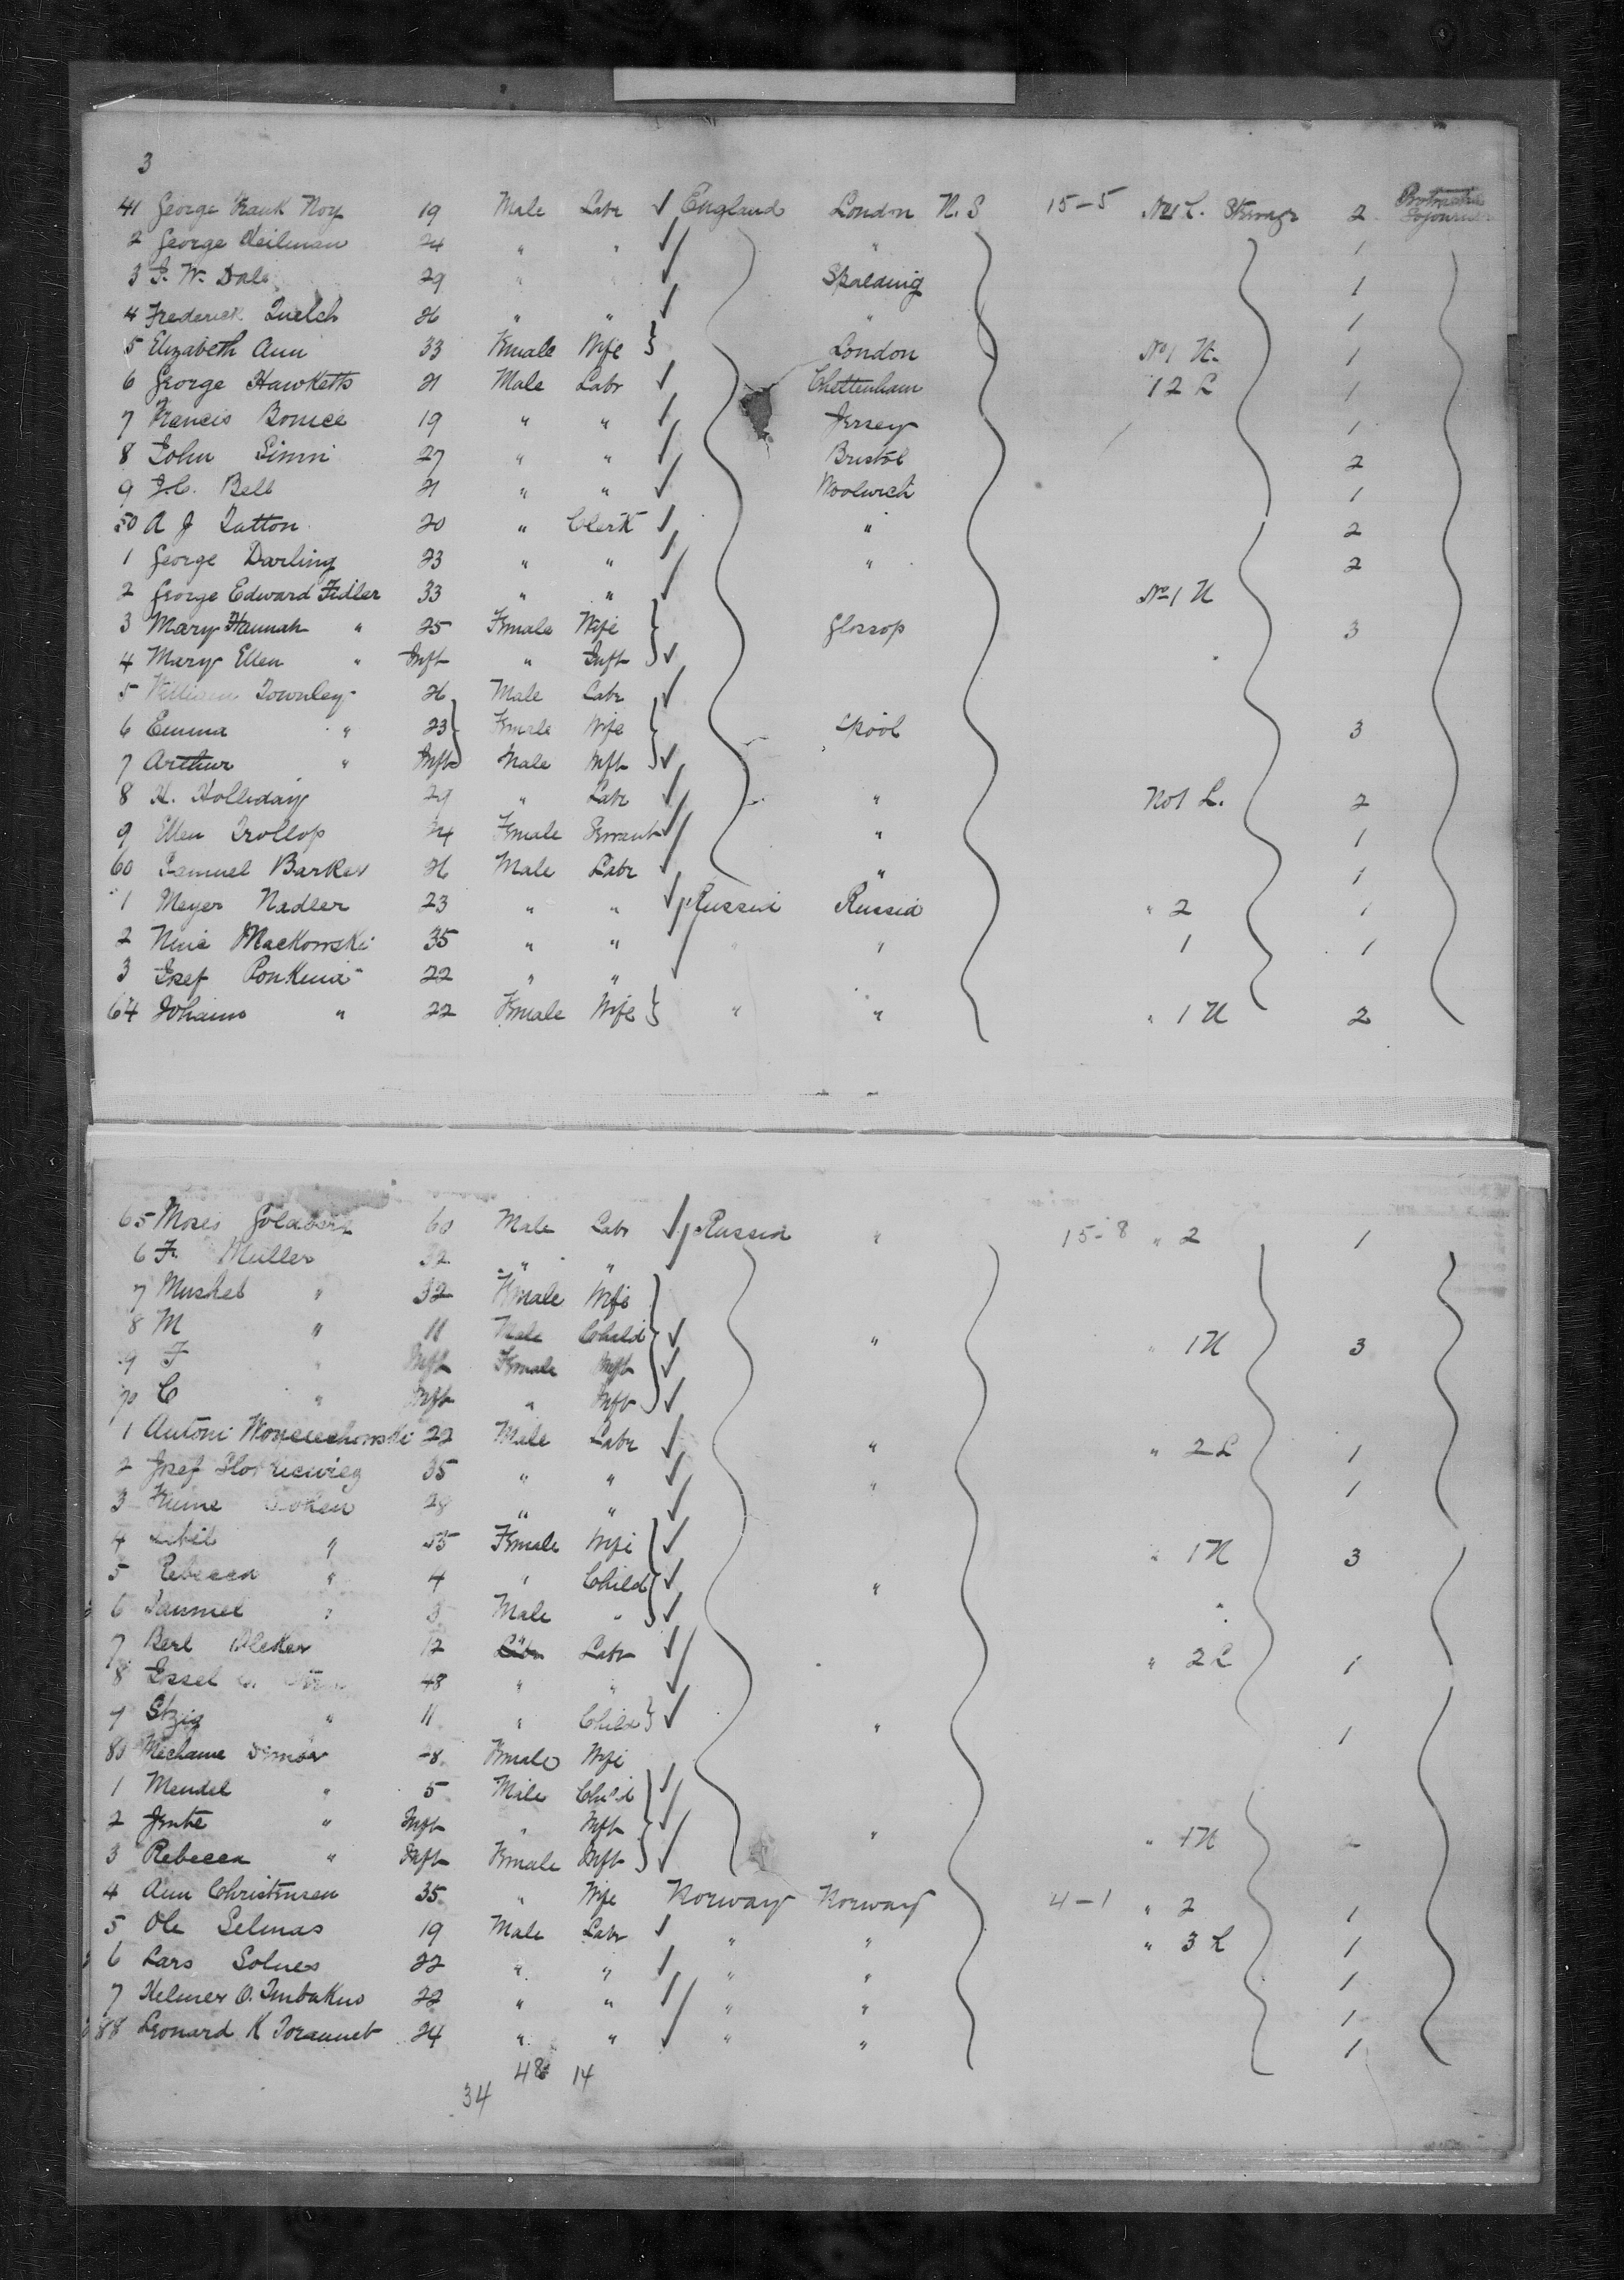 3
41 George Frank Noy 19 Male Labr ✓ England London U.S 15-5 No 1 L. Steerage 2 Protracted Sojourn
2 George Heilman 24 " " ✓ " 1
3 F. W. Dale 29 " ✓ Spalding 1
4 Frederick Quelch 26 " " ✓ " 1
5 Elizabeth Ann 33 Female Wife } London No 1 U. 1
6 George Hawketts 21 Male Labr ✓ Cheltenham 12 L 1
7 Francis 19 " " ✓ Jersey 1
8 John 27 " " ✓ Bristol 2
9 J.C. Bell 21 " " ✓ Woolwich 1
50 A J Tatton 20 " Clerk ✓ " 2
1 George Darling 23 " " ✓ " 2
2 George Edward Fidler 33 " " ✓ No 1 U
3 Mary Hannah " 25 Female Wife } Glossop 3
4 Mary Ellen " Inft " Inft } ✓
5 William Townley 26 Male Labr ✓
6 Emma " 23 Female Wife } Lpool 3
7 Arthur " Inft Male Inft } ✓
8 H. Holliday 29 " Labr ✓ " No 1 L. 2
9 Ellen Trollop 24 Female Servant ✓ " 1
60 Samuel Barker 26 Male Labr ✓ " 1
1 Meyer Nadler 23 " " ✓ Russia Russia " 2 1
2 Mackowski 35 " " ✓ " " 1 1
3 Josef 22 " " ✓
64 " 22 Female Wife } " " " 1 U 2
65 Moses Goldberg 60 Male Labr ✓ Russia " 15-8 " 2 1
6 F. Muller 32 " "
7 " 32 Female Wife
8 M " 11 Male Child ✓ " " 1 U 3
9 F " Inft Female Inft ✓
70 C " Inft " Inft ✓
1 Antoni 22 Male Labr ✓ " " 2 L 1
2 Josef 35 " " ✓ " 1
3 28 " " ✓
4 " 35 Female Wife ✓ " 1 U 3
5 Rebecca " 4 " Child ✓ "
6 " 3 Male " ✓
7 Berl 12 Labr ✓ " 2 L 1
8 48 " " ✓
9 " 11 " Child } ✓ " 1
80 28 Female Wife
1 Mendel " 5 Male Child ✓
2 " Inft " Inft ✓ " " 1 U 2
3 Rebecca " Inft Female Inft ✓
4 Ann Christensen 35 " Wife Norway Norway 4-1 " 2 1
5 Ole Selmas 19 Male Labr ✓ " " " 3 L 1
6 Lars Solnes 22 " " ✓ " " 1
7 Helmer O. 22 " " ✓ " " 1
88 Leonard K 24 " " ✓ " " 1
48 14
34